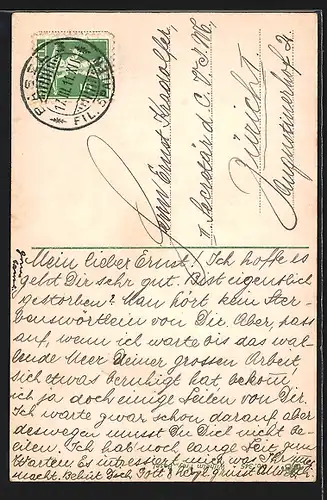 BASEL
FIL. 5
Herrn Ernst
I. Secretär d. C. V. J. M.
Zürich I.
Augustinerhof 2.
Mein lieber Ernst! Ich hoffe es
geht Dir sehr gut. Bist eigentlich
gestorben? Man hört kein Ster-
benswörtlein von Dir. Aber, pass
auf, wenn ich warte bis das wal-
lende Meer Deiner grossen Arbeit
sich etwas beruhigt hat, bekom̄
ich ja doch einige Zeilen von Dir.
Ich warte zwar schon darauf, aber
deswegen musst Du Dich nicht be-
eilen. Ich hab noch lange Zeit zum
Warten. Es intressiert mich was Ihr
macht. Behüt Dich Gott! Herzl. grüsst